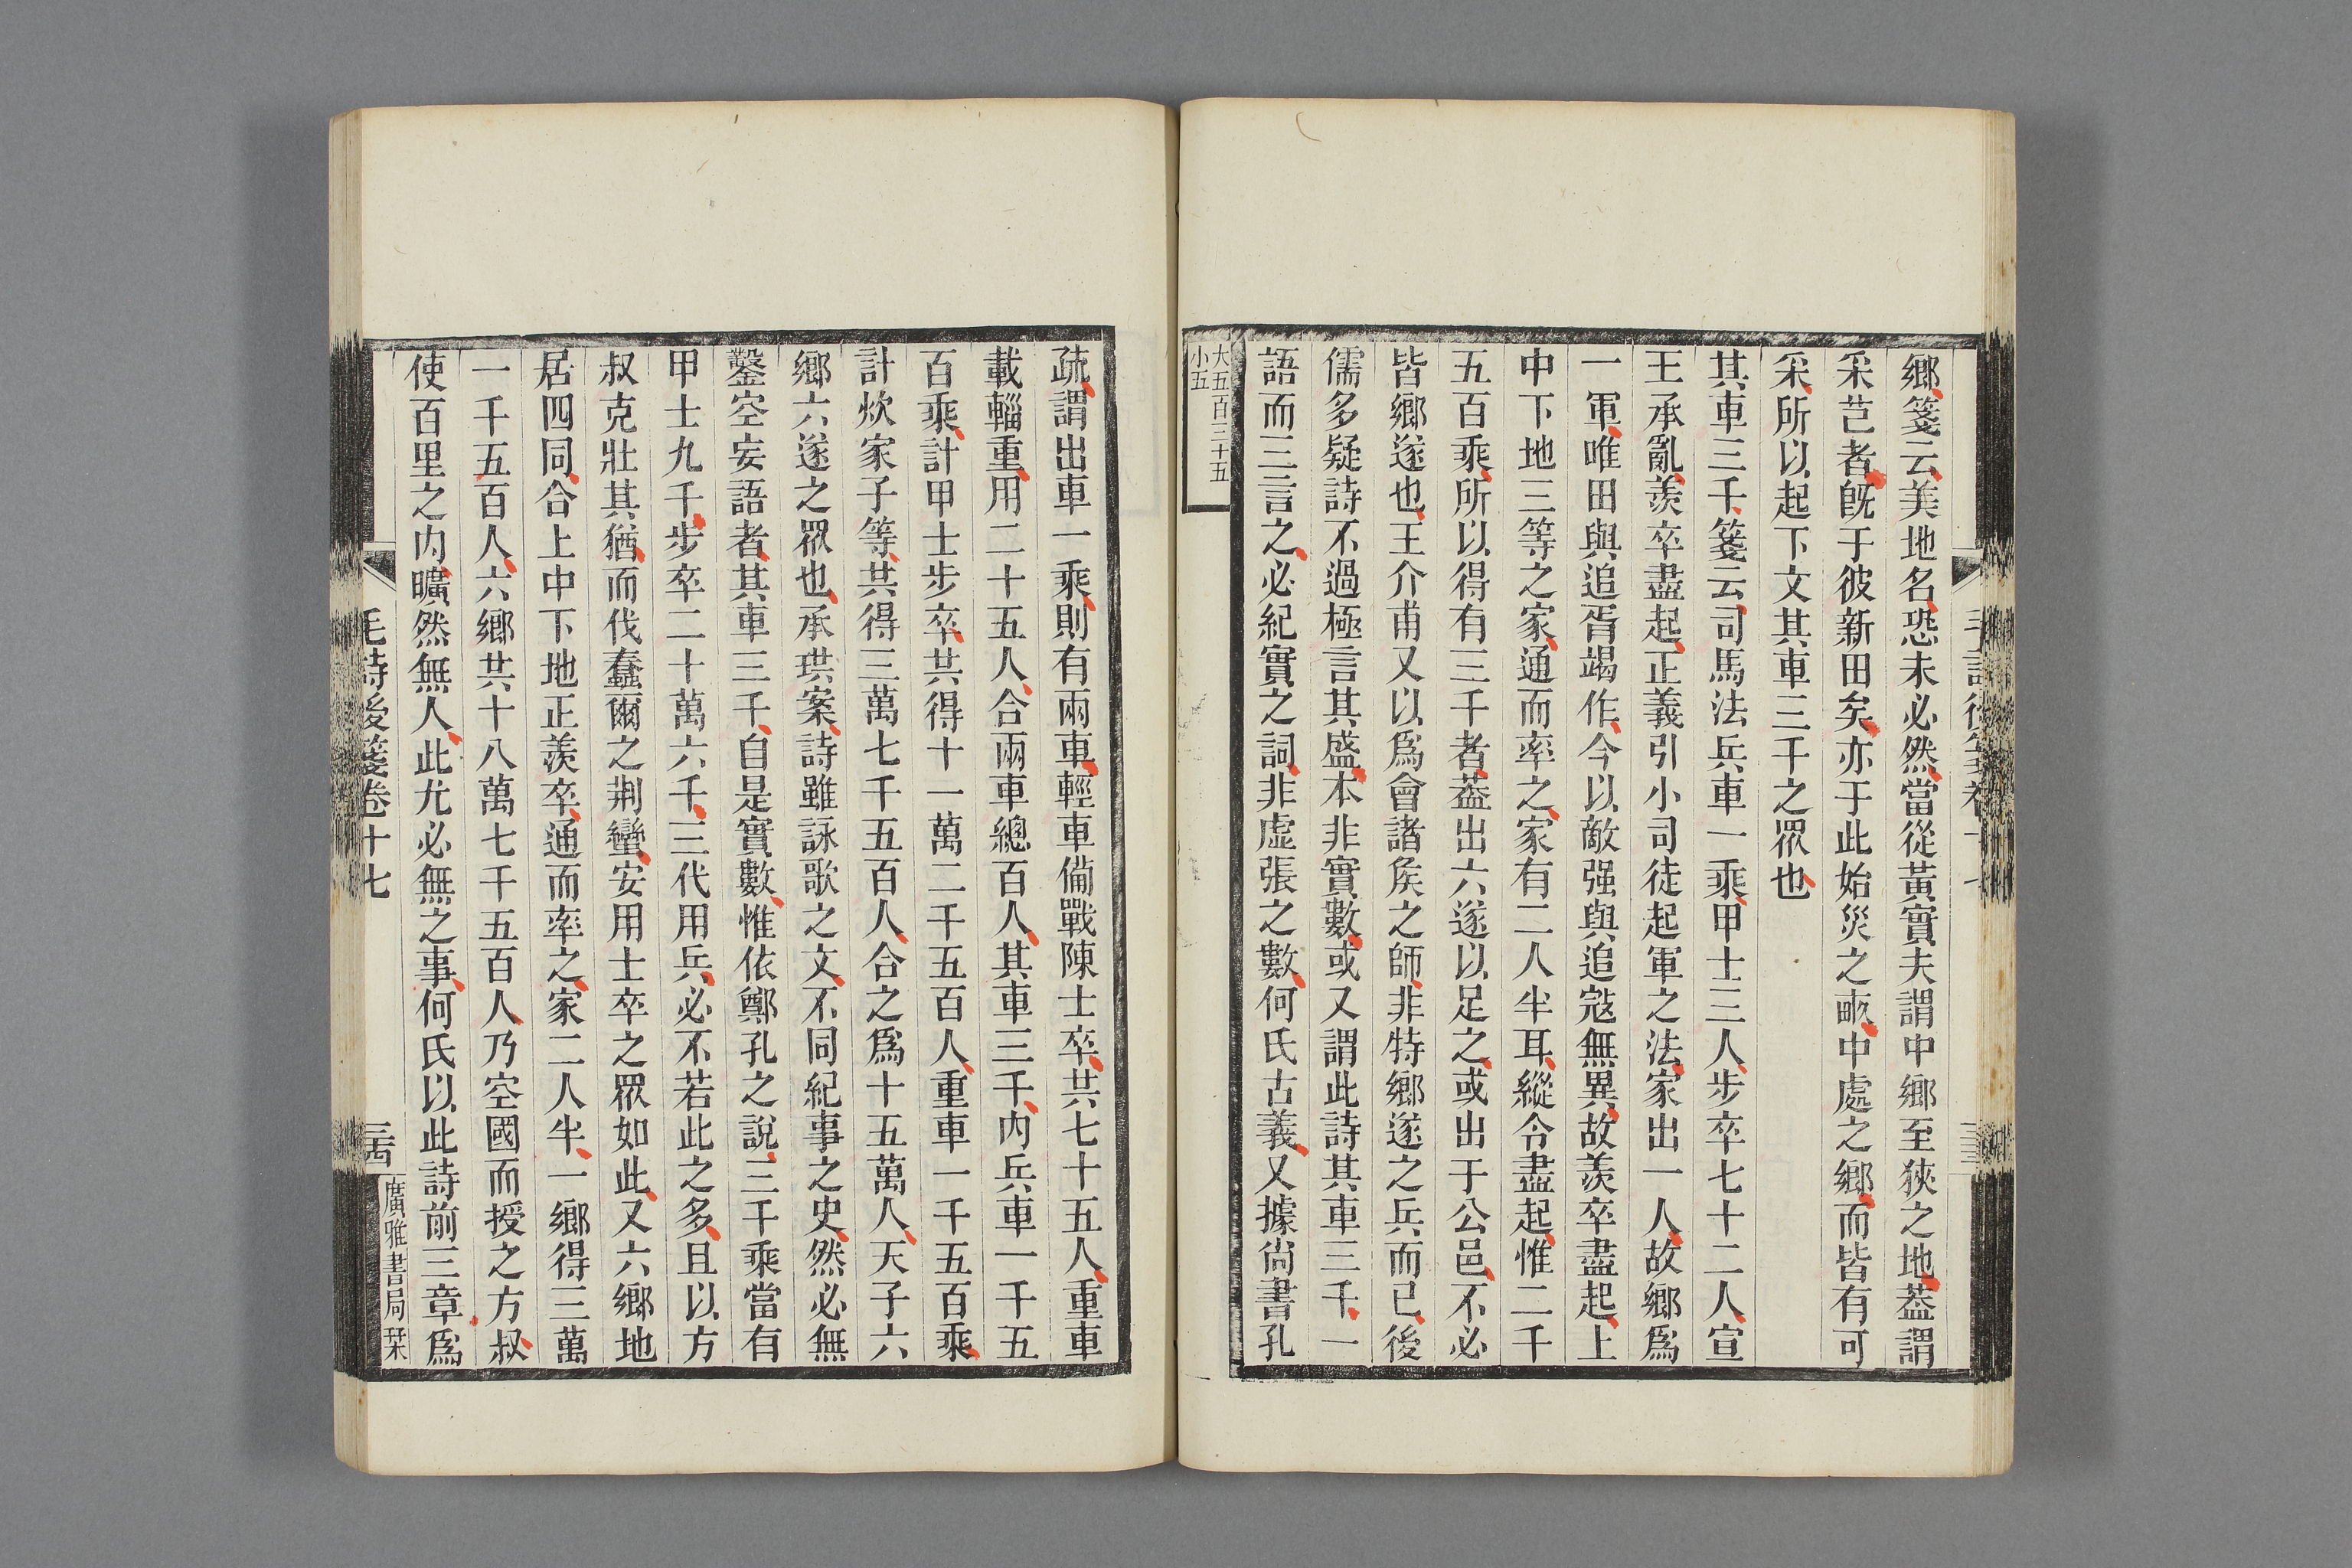 鄉箋云美地名恐未必然當從黃實夫謂中鄉至狹之地葢謂
采芑者旣于彼新田矣亦于此始災之畝中處之鄉而皆有可
采所以起下文其車三千之眾也
其車三千箋云司馬法兵車一乘甲士三人步卒七十二人宣
王承亂羨卒盡起正義引小司徒起軍之法家出一人故鄉爲
一軍唯田與追胥竭作今以敵强與追寇無異故羨卒盡起上
中下地三等之家通而率之家有二人半耳縱令盡起惟二千
五百乘所以得有三千者葢出六遂以足之或出于公邑不必
皆鄉遂也王介甫又以爲會諸侯之師非特鄉遂之兵而已後
儒多疑詩不過極言其盛本非實數或又謂此詩其車三千一
語而三言之必紀實之詞非虛張之數何氏古義又據尙書孔
大五百三十五
小五
疏謂出車一乘則有兩車輕車備戰陳士卒共七十五人重車
載輜重用二十五人合兩車總百人其車三千內兵車一千五
百乘計甲士步卒共得十一萬二千五百人重車一千五百乘
計炊家子等共得三萬七千五百人合之爲十五萬人天子六
鄉六遂之眾也承珙案詩雖詠歌之文不同紀事之史然必無
鑿空妄語者其車三千自是實數惟依鄭孔之說三千乘當有
甲士九千步卒二十萬六千三代用兵必不若此之多且以方
叔克壯其猶而伐蠢爾之荆蠻安用士卒之眾如此又六鄉地
居四同合上中下地正羨卒通而率之家二人半一鄉得三萬
一千五百人六鄉共十八萬七千五百人乃空國而授之方叔
使百里之內曠然無人此尤必無之事何氏以此詩前三章爲
毛詩後箋卷十七
三四
廣雅書局栞